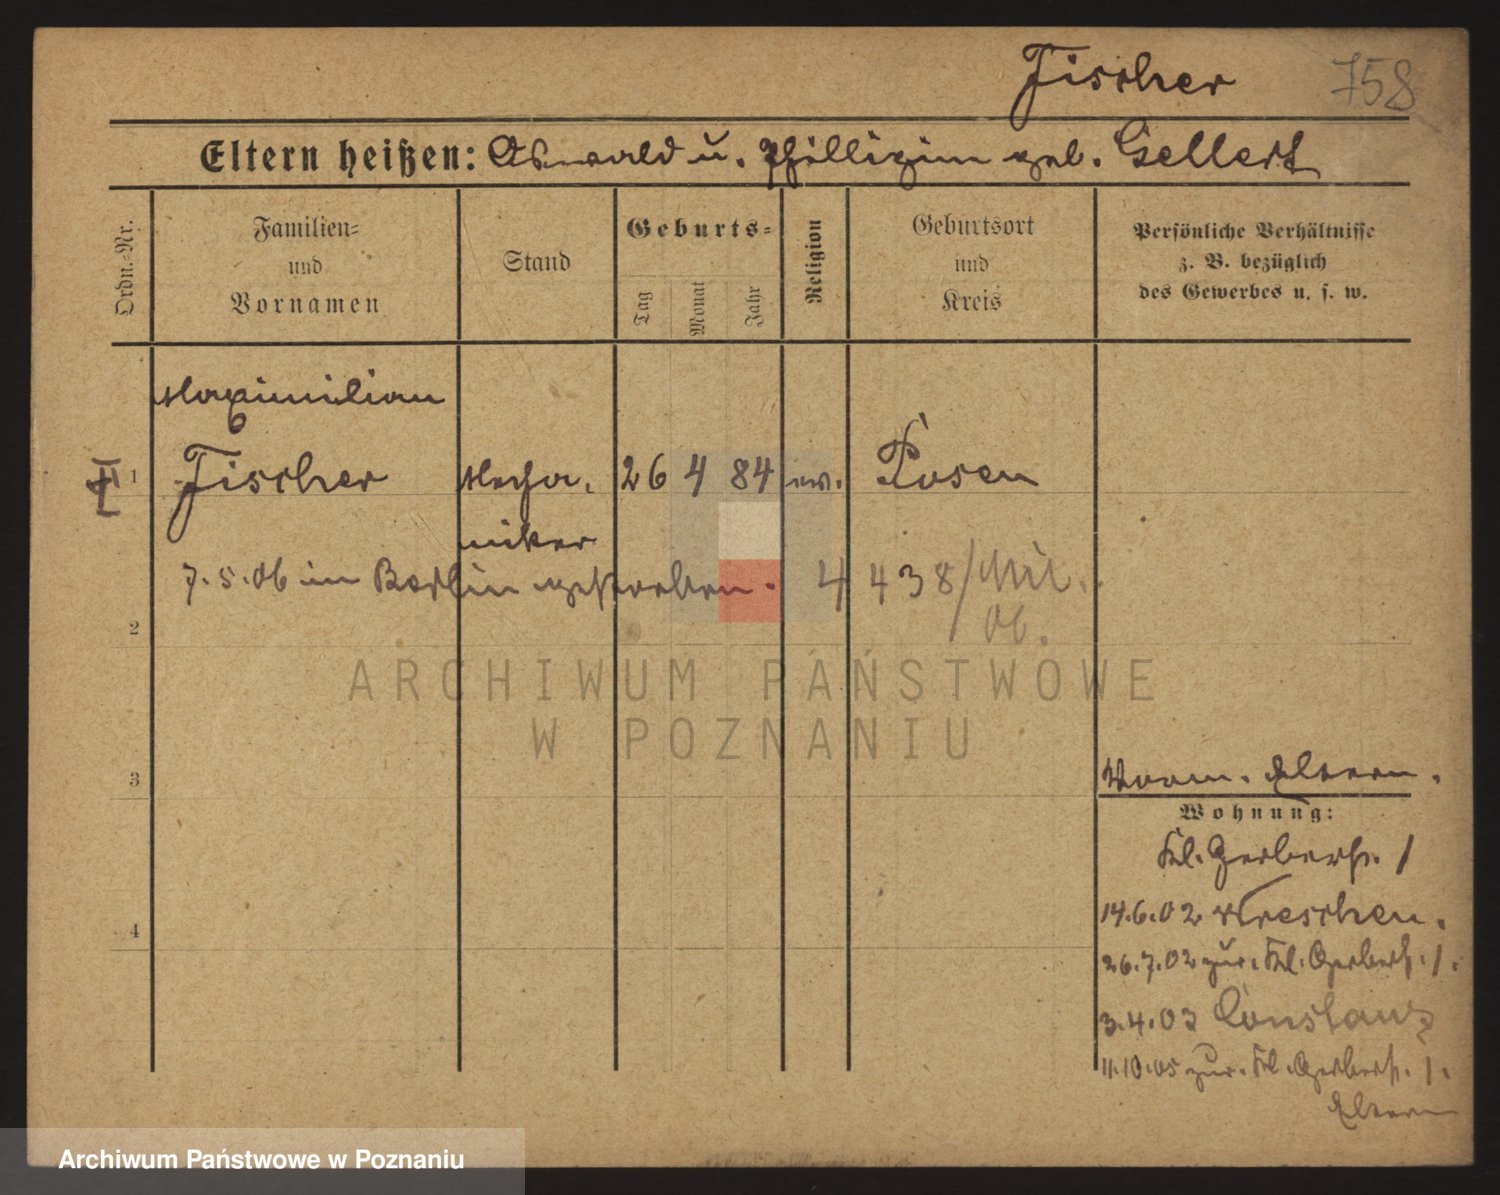 Fischer 758
Eltern heißen: Oswald u. geb. Gellert
Ordn.-Nr.
Familien-
und
Vornamen
Stand
Geburts-
Tag
Monat
Jahr
Religion
Geburtsort
und
Kreis
Persönliche Verhältnisse
z. B. bezüglich
des Gewerbes u. s. w.
Maximilian
1 Fischer Mecha- 26 4 84 ev. Posen
niker
7.5.06 in Berlin gestorben. 4438/Mil.
06.
2
ARCHIWUM PAŃSTWOWE
W POZNANIU
3
Eltern.
Wohnung:
Kl. Gerberst. 1
4
14.6.02 Wreschen.
26.7.02 zur. Kl. Gerberst. 1.
3.4.03 Constanz
11.10.05 zur. Kl. Gerberst. 1.
Eltern
Archiwum Państwowe w Poznaniu